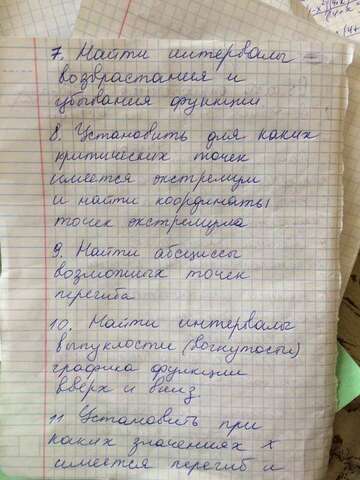 7. Найти интервалы
возврастания и
убывания функции
8. Установить для каких
критических точек
имеется экстремум
и найти координаты
точек экстремума
9. Найти абсциссы
возможных точек
перегиба
10. Найти интервалы
выпуклости (вогнутости)
графика функции
вверх и вниз
11 Установить при
каких значениях x
имеется перегиб и